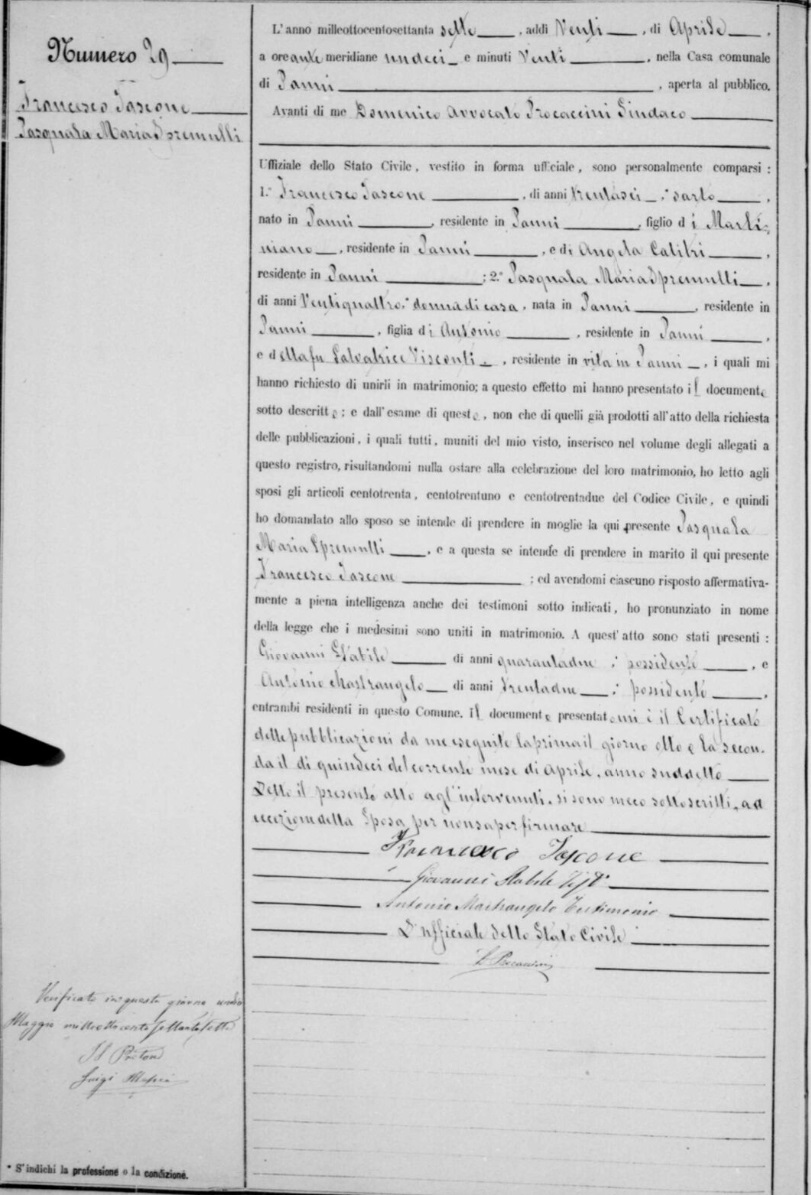 Numero 29
Francesco Tascone
Pasquala Maria Spremulli
L'anno milleottocentosettanta sette, addì Venti, di Aprile,
a ore ante meridiane undeci e minuti Venti, nella Casa comunale
di Panni, aperta al pubblico.
Avanti di me Domenico Avvocato Procaccini Sindaco
Uffiziale dello Stato Civile, vestito in forma ufficiale, sono personalmente comparsi:
1.° Francesco Tascone, di anni trentasei, * sarto,
nato in Panni, residente in Panni, figlio di Marti-
niano, residente in Panni, e di Angela Calitri,
residente in Panni; 2.° Pasquala Maria Spremulli,
di anni Ventiquattro, * donna di casa, nata in Panni, residente in
Panni, figlia di Antonio, residente in Panni,
e della fu Salvatrice Visconti, residente in vita in Panni, i quali mi
hanno richiesto di unirli in matrimonio; a questo effetto mi hanno presentato il documento
sotto descritto; e dall'esame di questo, non che di quelli già prodotti all'atto della richiesta
delle pubblicazioni, i quali tutti, muniti del mio visto, inserisco nel volume degli allegati a
questo registro, risultandomi nulla ostare alla celebrazione del loro matrimonio, ho letto agli
sposi gli articoli centotrenta, centotrentuno e centotrentadue del Codice Civile, e quindi
ho domandato allo sposo se intende di prendere in moglie la qui presente Pasquala
Maria Spremulli, e a questa se intende di prendere in marito il qui presente
Francesco Tascone; ed avendomi ciascuno risposto affermativa-
mente a piena intelligenza anche dei testimoni sotto indicati, ho pronunziato in nome
della legge che i medesimi sono uniti in matrimonio. A quest'atto sono stati presenti:
Giovanni Stabile di anni quarantadue * possidente, e
Antonio Mastrangelo di anni trentadue * possidente,
entrambi residenti in questo Comune. Il documento presentatomi è il Certificato
delle pubblicazioni da me eseguite la prima il giorno otto e la secon-
da il di quindeci del corrente mese di Aprile, anno suddetto
Letto il presente atto agl'intervenuti, si sono meco sottoscritti, ad
eccezione della Sposa per non saper firmare
Francesco Tascone
Giovanni Stabile
Antonio Mastrangelo Testimonio
L'ufficiale dello Stato Civile
D. Procaccini
Verificato in questo giorno
Maggio milleottocento settantasette
Il Pretore
Luigi
* S'indichi la professione o la condizione.